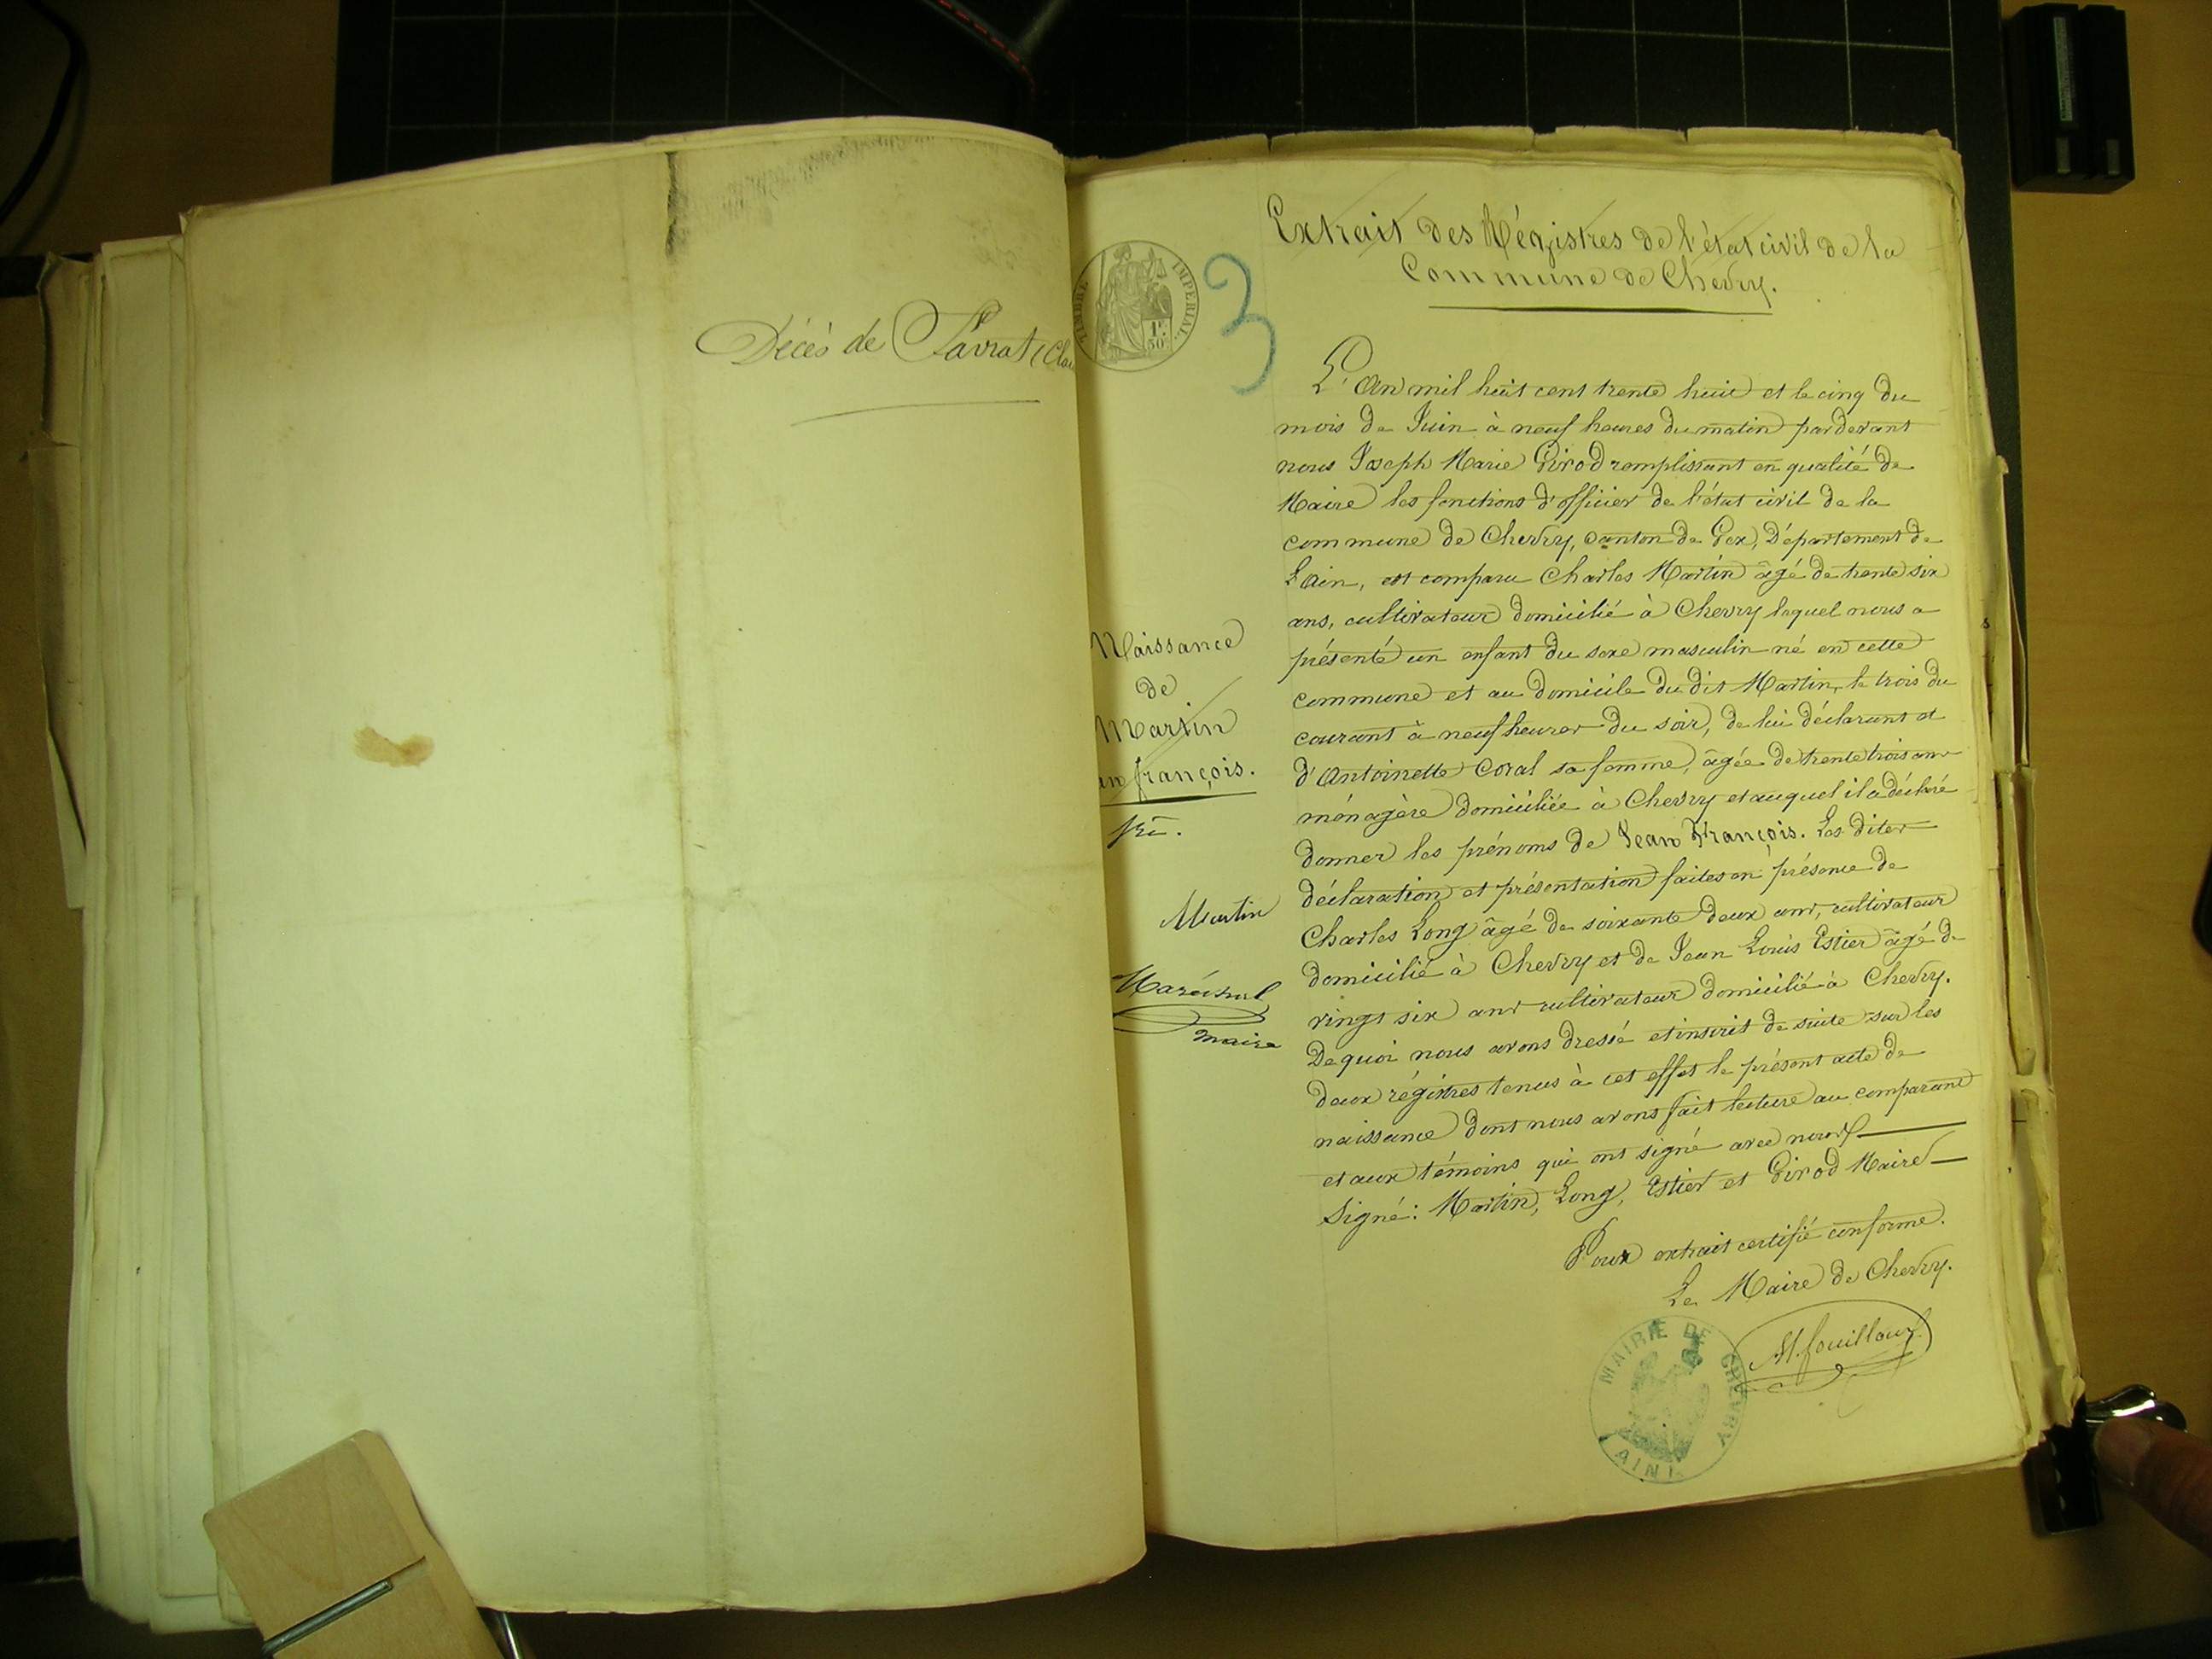 Décès de Pavrat (Clau
TIMBRE IMPERIAL
1F.
50
3
Extrait des Régistres de l'état civil de la
Commune de Chevry.
Naissance
de
Martin
an françois.
Martin
Maréchal
maire
L'An mil huit cent trente huit et le cinq du
mois de Juin à neuf heures du matin par devant
nous Joseph Marie Girod remplissant en qualité de
Maire les fonctions d'officier de l'état civil de la
commune de Chevry, canton de Gex, Département de
L'Ain, est comparu Charles Martin âgé de trente six
ans, cultivateur domicilié à Chevry lequel nous a
présenté un enfant du sexe masculin né en cette
commune et au domicile du dit Martin, le trois du
courant à neuf heures du soir, de lui déclarant et
d'Antoinette Coral sa femme, âgée de trente trois ans
ménagère domiciliée à Chevry et auquel il a déclaré
donner les prénoms de Jean François. Les dites
déclaration et présentation faites en présence de
Charles Long âgé de soixante deux ans, cultivateur
domicilié à Chevry et de Jean Louis Estier âgé de
vingt six ans cultivateur domicilié à Chevry.
De quoi nous avons dressé et inscrit de suite sur les
deux régistres tenus à cet effet le présent acte de
naissance dont nous avons fait lecture au comparant
et aux témoins qui ont signé avec nous
Signé: Martin, Long, Estier et Girod Maire
Pour extrait certifié conforme.
Le Maire de Chevry.
MAIRIE DE CHEVRY
AIN